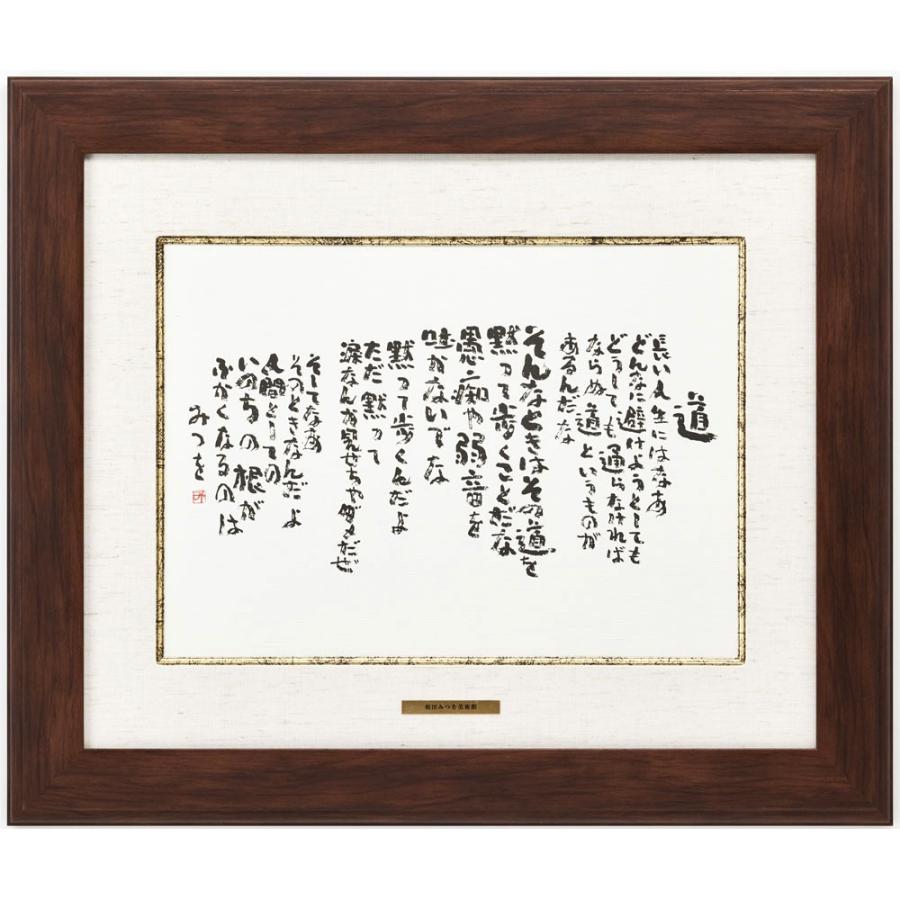 道
長い人生にはなあ
どんなに避けようとしても
どうしても通らなければ
ならぬ道というものが
あるんだな
そんなときはその道を
黙って歩くことだな
愚痴や弱音を
吐かないでな
黙って歩くんだよ
ただ黙って
涙なんか見せちゃダメだぜ
そしてなあ
そのときなんだよ
人間としての
いのちの根が
ふかくなるのは
みつを
相田みつを美術館